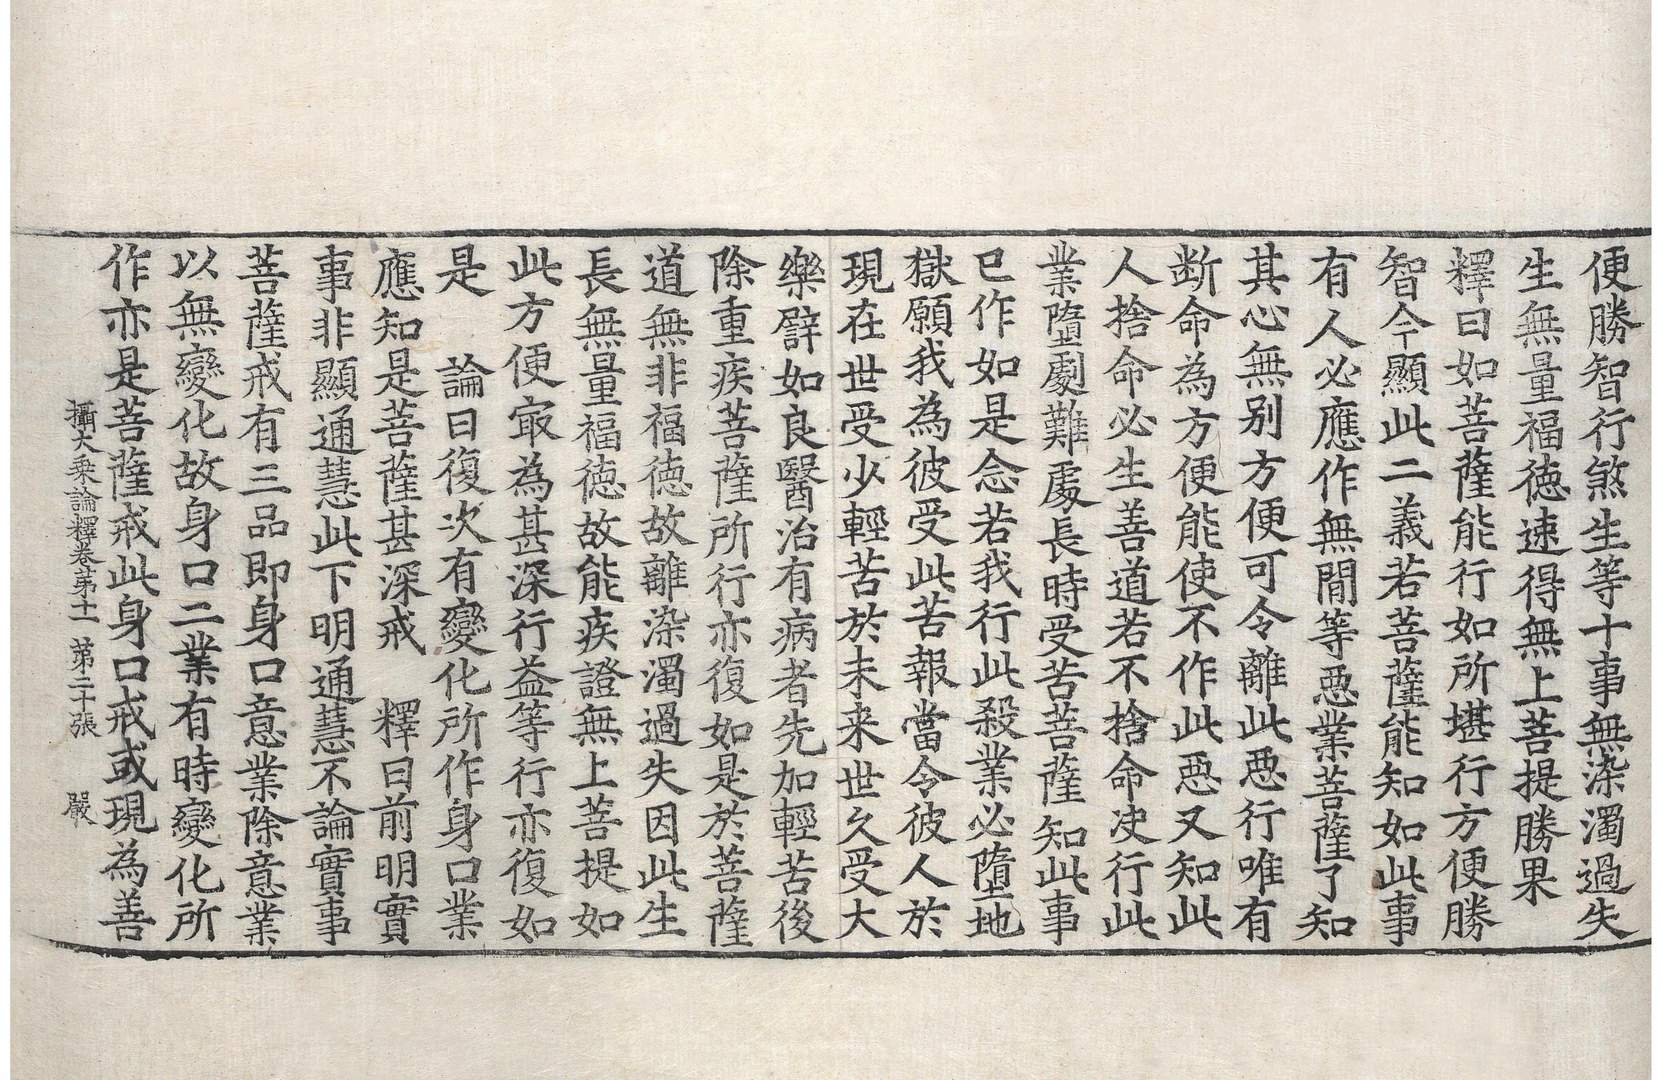 便勝智行煞生等十事無染濁過失
生無量福徳速得無上菩提勝果
釋曰如菩薩能行如所堪行方便勝
智今顯此二義若菩薩能知如此事
有人必應作無間等惡業菩薩了知
其心無别方便可令離此惡行唯有
断命為方便能使不作此惡又知此
人捨命必生善道若不捨命决行此
業墮劇難處長時受苦菩薩知此事
已作如是念若我行此殺業必墮地
獄願我為彼受此苦報當令彼人於
現在世受少輕苦於未来世久受大
樂譬如良醫治有病者先加輕苦後
除重疾菩薩所行亦復如是於菩薩
道無非福徳故離染濁過失因此生
長無量福徳故能疾證無上菩提如
此方便㝡為甚深行益等行亦復如
是　論曰復次有變化所作身口業
應知是菩薩甚深戒　釋曰前明實
事非顯通慧此下明通慧不論實事
菩薩戒有三品即身口意業除意業
以無變化故身口二業有時變化所
作亦是菩薩戒此身口戒或現為善
攝大乘論釋卷苐十一　苐二十張　嚴